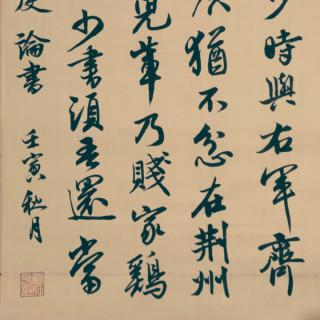 少時與右軍齊
猶不忿在荆州
兒輩乃賤家鷄
少書須吾還當
論書
壬寅秋月